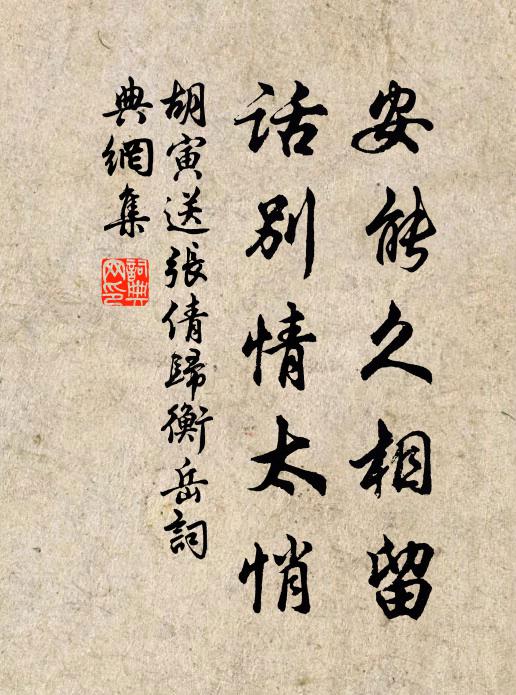 安能久相留
话别情太悄
胡寅送張倩歸衡岳詞
典網集
詞典网印